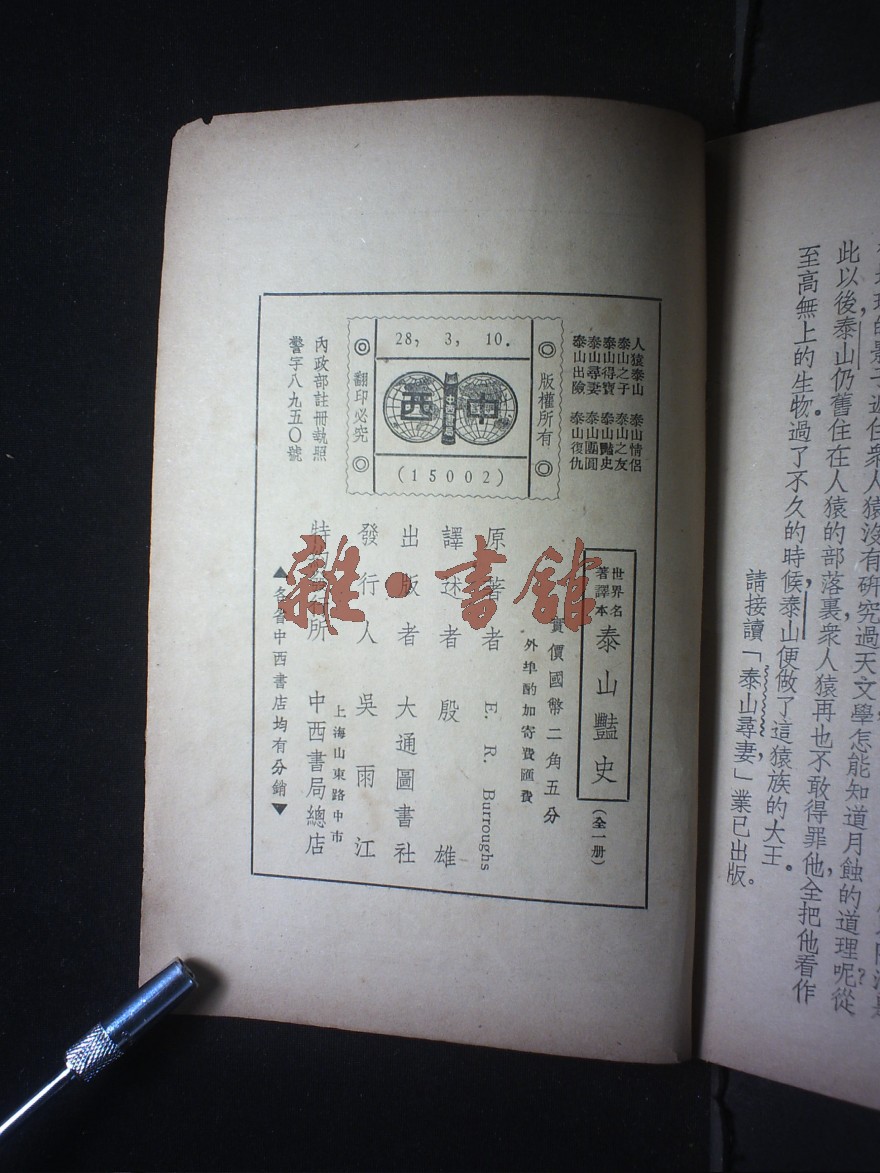 此以後，泰山仍舊住在人猿的部落裏，衆人猿再也不敢得罪他，全把他看作
至高無上的生物。過了不久的時候，泰山便做了這猿族的大王。
請接讀「泰山尋妻」，業已出版。
人猿泰山 泰山情侶
泰山之子 泰山之友
泰山得寶 泰山豔史
泰山尋妻 泰山團圓
泰山出險 泰山復仇
版權所有
28, 3, 10.
西中
中西書局
(15002)
翻印必究
內政部註冊執照
警字八九五〇號
世界名著譯本 泰山豔史 (全一册)
實價國幣二角五分
外埠酌加寄費匯費
原著者 E. R. Burroughs
譯述者 殷雄
出版者 大通圖書社
發行人 吳雨江
上海山東路中市
特約發行所 中西書局總店
▲各省中西書店均有分銷▼
雜·書館